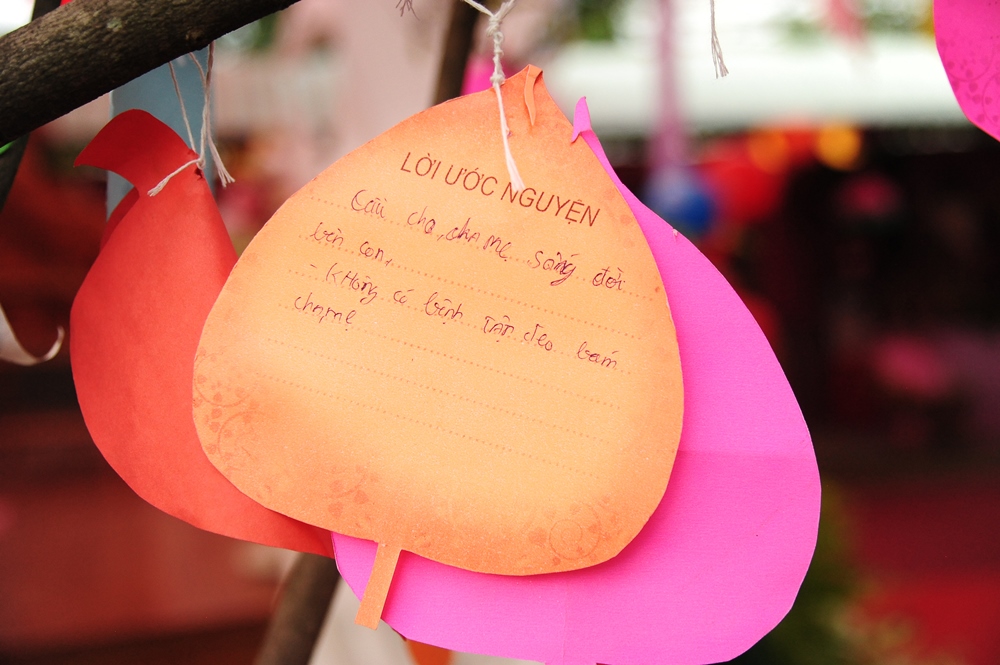 LỜI ƯỚC NGUYỆN
Cầu cha, cha mẹ sống đời
bên con,
- Không có bệnh tận đeo bám
cha, mẹ